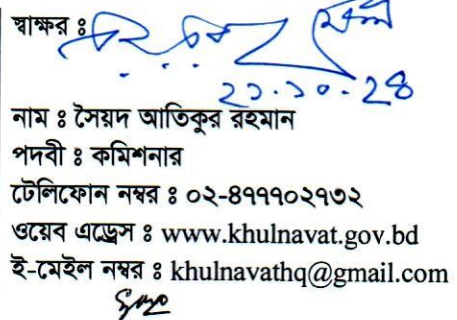 স্বাক্ষর ঃ
২১.১০.২৪
নাম ঃ সৈয়দ আতিকুর রহমান
পদবী ঃ কমিশনার
টেলিফোন নম্বর ঃ ০২-৪৭৭৭০২৭৩২
ওয়েব এড্রেস ঃ www.khulnavat.gov.bd
ই-মেইল নম্বর ঃ khulnavathq@gmail.com